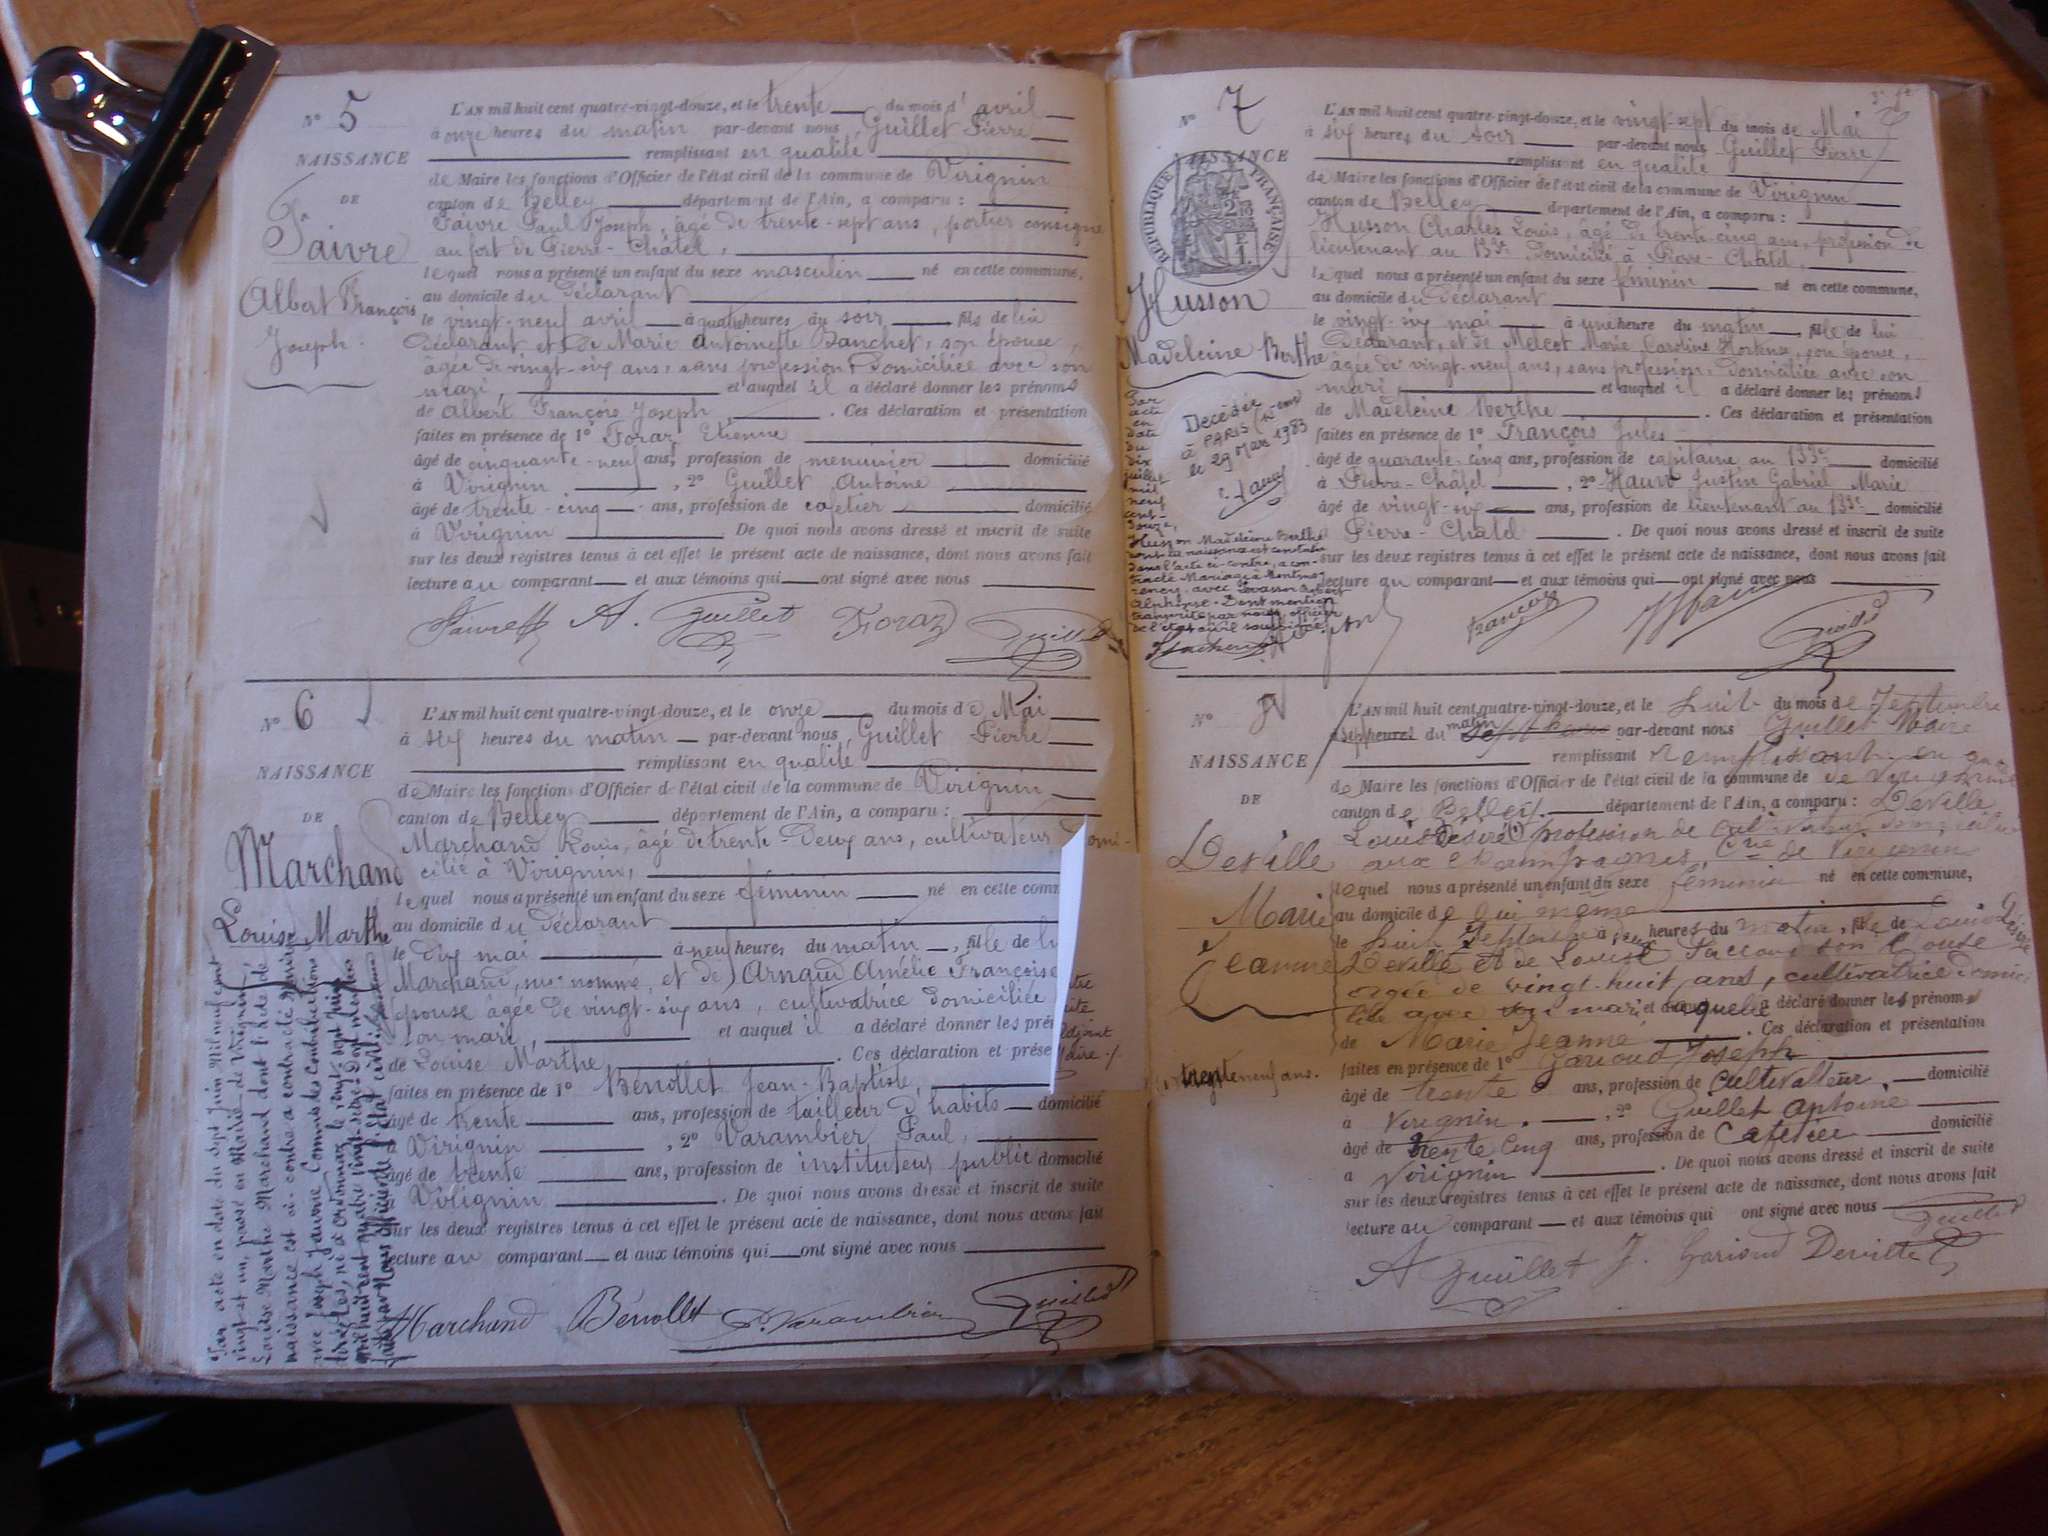 N° 5
NAISSANCE
DE
Faivre
Albert François
Joseph
L'AN mil huit cent quatre-vingt-douze, et le trente du mois d'avril
à onze heures du matin par-devant nous, Guillet Pierre
remplissant en qualité
de Maire les fonctions d'Officier de l'état civil de la commune de Virignin
canton de Belley département de l'Ain, a comparu :
Faivre Paul Joseph, âgé de trente-sept ans, portier consigne
au fort de Pierre-Châtel,
lequel nous a présenté un enfant du sexe masculin né en cette commune,
au domicile du déclarant
le vingt-neuf avril à quatre heures du soir, fils de lui
déclarant et de Marie Antoinette Banchet, son épouse,
âgée de vingt-six ans, sans profession, domiciliée avec son
mari, et auquel il a déclaré donner les prénoms
de Albert François Joseph, . Ces déclaration et présentation
faites en présence de 1° Foraz Etienne
âgé de cinquante-neuf ans, profession de menuisier domicilié
à Virignin , 2° Guillet Antoine
âgé de trente-cinq ans, profession de cafetier domicilié
à Virignin . De quoi nous avons dressé et inscrit de suite
sur les deux registres tenus à cet effet le présent acte de naissance, dont nous avons fait
lecture au comparant et aux témoins qui ont signé avec nous
Faivre A. Guillet Foraz Guillet
N° 6
NAISSANCE
DE
Marchand
Louise Marthe
L'AN mil huit cent quatre-vingt-douze, et le onze du mois de Mai
à six heures du matin par-devant nous, Guillet Pierre
remplissant en qualité
de Maire les fonctions d'Officier de l'état civil de la commune de Virignin
canton de Belley département de l'Ain, a comparu :
Marchand Louis, âgé de trente-deux ans, cultivateur domi-
cilié à Virignin,
lequel nous a présenté un enfant du sexe féminin né en cette comm
au domicile du déclarant
le dix mai à neuf heures du matin, fille de l
Marchand, sus-nommé, et de Arnaud Amélie Françoise
épouse âgée de vingt-six ans, cultivatrice domiciliée
son mari, et auquel il a déclaré donner les pré
de Louise Marthe . Ces déclaration et prése
faites en présence de 1° Bénollet Jean-Baptiste,
âgé de trente ans, profession de tailleur d'habits domicilié
à Virignin , 2° Varambier Paul,
âgé de trente ans, profession de instituteur public domicilié
Virignin . De quoi nous avons dressé et inscrit de suite
sur les deux registres tenus à cet effet le présent acte de naissance, dont nous avons fait
lecture au comparant et aux témoins qui ont signé avec nous
Marchand Bénollet P. Varambier Guillet
Par acte en date du sept juin mil neuf cent
vingt et un, passé en Mairie de Virignin
Louise Marthe Marchand dont l'acte de
naissance est ci-contre a contracté mariage
avec Joseph Commis des Contributions
directes, né à le vingt-sept juin
mil huit cent quatre vingt-seize dont mention
faite par Nous officier de l'état civil
N° 7
NAISSANCE
RÉPUBLIQUE FRANÇAISE
Husson
Madeleine Berthe
L'AN mil huit cent quatre-vingt-douze, et le vingt-sept du mois de Mai
à six heures du soir par-devant nous Guillet Pierre
remplissant en qualité
de Maire les fonctions d'Officier de l'état civil de la commune de Virignin
canton de Belley département de l'Ain, a comparu :
Husson Charles Louis, âgé de trente-cinq ans, profession de
lieutenant au 133e domicilié à Pierre-Châtel,
lequel nous a présenté un enfant du sexe féminin né en cette commune,
au domicile du déclarant
le vingt-six mai à une heure du matin, fille de lui
Déclarant, et de Melcot Marie Caroline Hortense, son épouse,
âgée de vingt-neuf ans, sans profession, domiciliée avec son
mari, et auquel il a déclaré donner les prénoms
de Madeleine Berthe . Ces déclaration et présentation
faites en présence de 1° François Jules
âgé de quarante-cinq ans, profession de capitaine au 133e domicilié
à Pierre-Châtel , 2° Haus Justin Gabriel Marie
âgé de vingt-six ans, profession de lieutenant au 133e domicilié
Pierre-Châtel . De quoi nous avons dressé et inscrit de suite
sur les deux registres tenus à cet effet le présent acte de naissance, dont nous avons fait
lecture au comparant et aux témoins qui ont signé avec nous
Décédée
à PARIS
le 29 Mars 1983
Par
acte
en
date
du
dix
juillet
mil
neuf
cent
douze,
Husson Madeleine Berthe
dont la naissance est constatée
dans l'acte ci-contre, a con-
tracté Mariage à Montmo-
rency avec Levasson
Alphonse. Dont mention
transcrite par nous officier
de l'état civil soussigné.
François Guillet
N° 8
NAISSANCE
DE
Deville
Marie
Jeanne
L'AN mil huit cent quatre-vingt-douze, et le huit du mois de Septembre
heures du matin par-devant nous Guillet Maire
remplissant remplissant en qua
de Maire les fonctions d'Officier de l'état civil de la commune de
canton de Belley département de l'Ain, a comparu : Deville
Louis Désiré (1) profession de cultivateur domicilié
aux Champagnes, Cne de Virignin
lequel nous a présenté un enfant du sexe féminin né en cette commune,
au domicile de lui même
le huit Septembre à deux heures du matin, fille de Louis Désiré
Deville et de Louise son Epouse
âgée de vingt-huit ans, cultivatrice domici
liée avec son mari et auquel a déclaré donner les prénoms
de Marie Jeanne . Ces déclaration et présentation
faites en présence de 1° Garioud Joseph
âgé de trente ans, profession de Cultivateur, domicilié
à Virignin. , 2° Guillet Antoine
âgé de trente Cinq ans, profession de Cafetier domicilié
à Virignin . De quoi nous avons dressé et inscrit de suite
sur les deux registres tenus à cet effet le présent acte de naissance, dont nous avons fait
lecture au comparant et aux témoins qui ont signé avec nous
(1) trente neuf ans.
A Guillet J. Garioud Deville Guillet